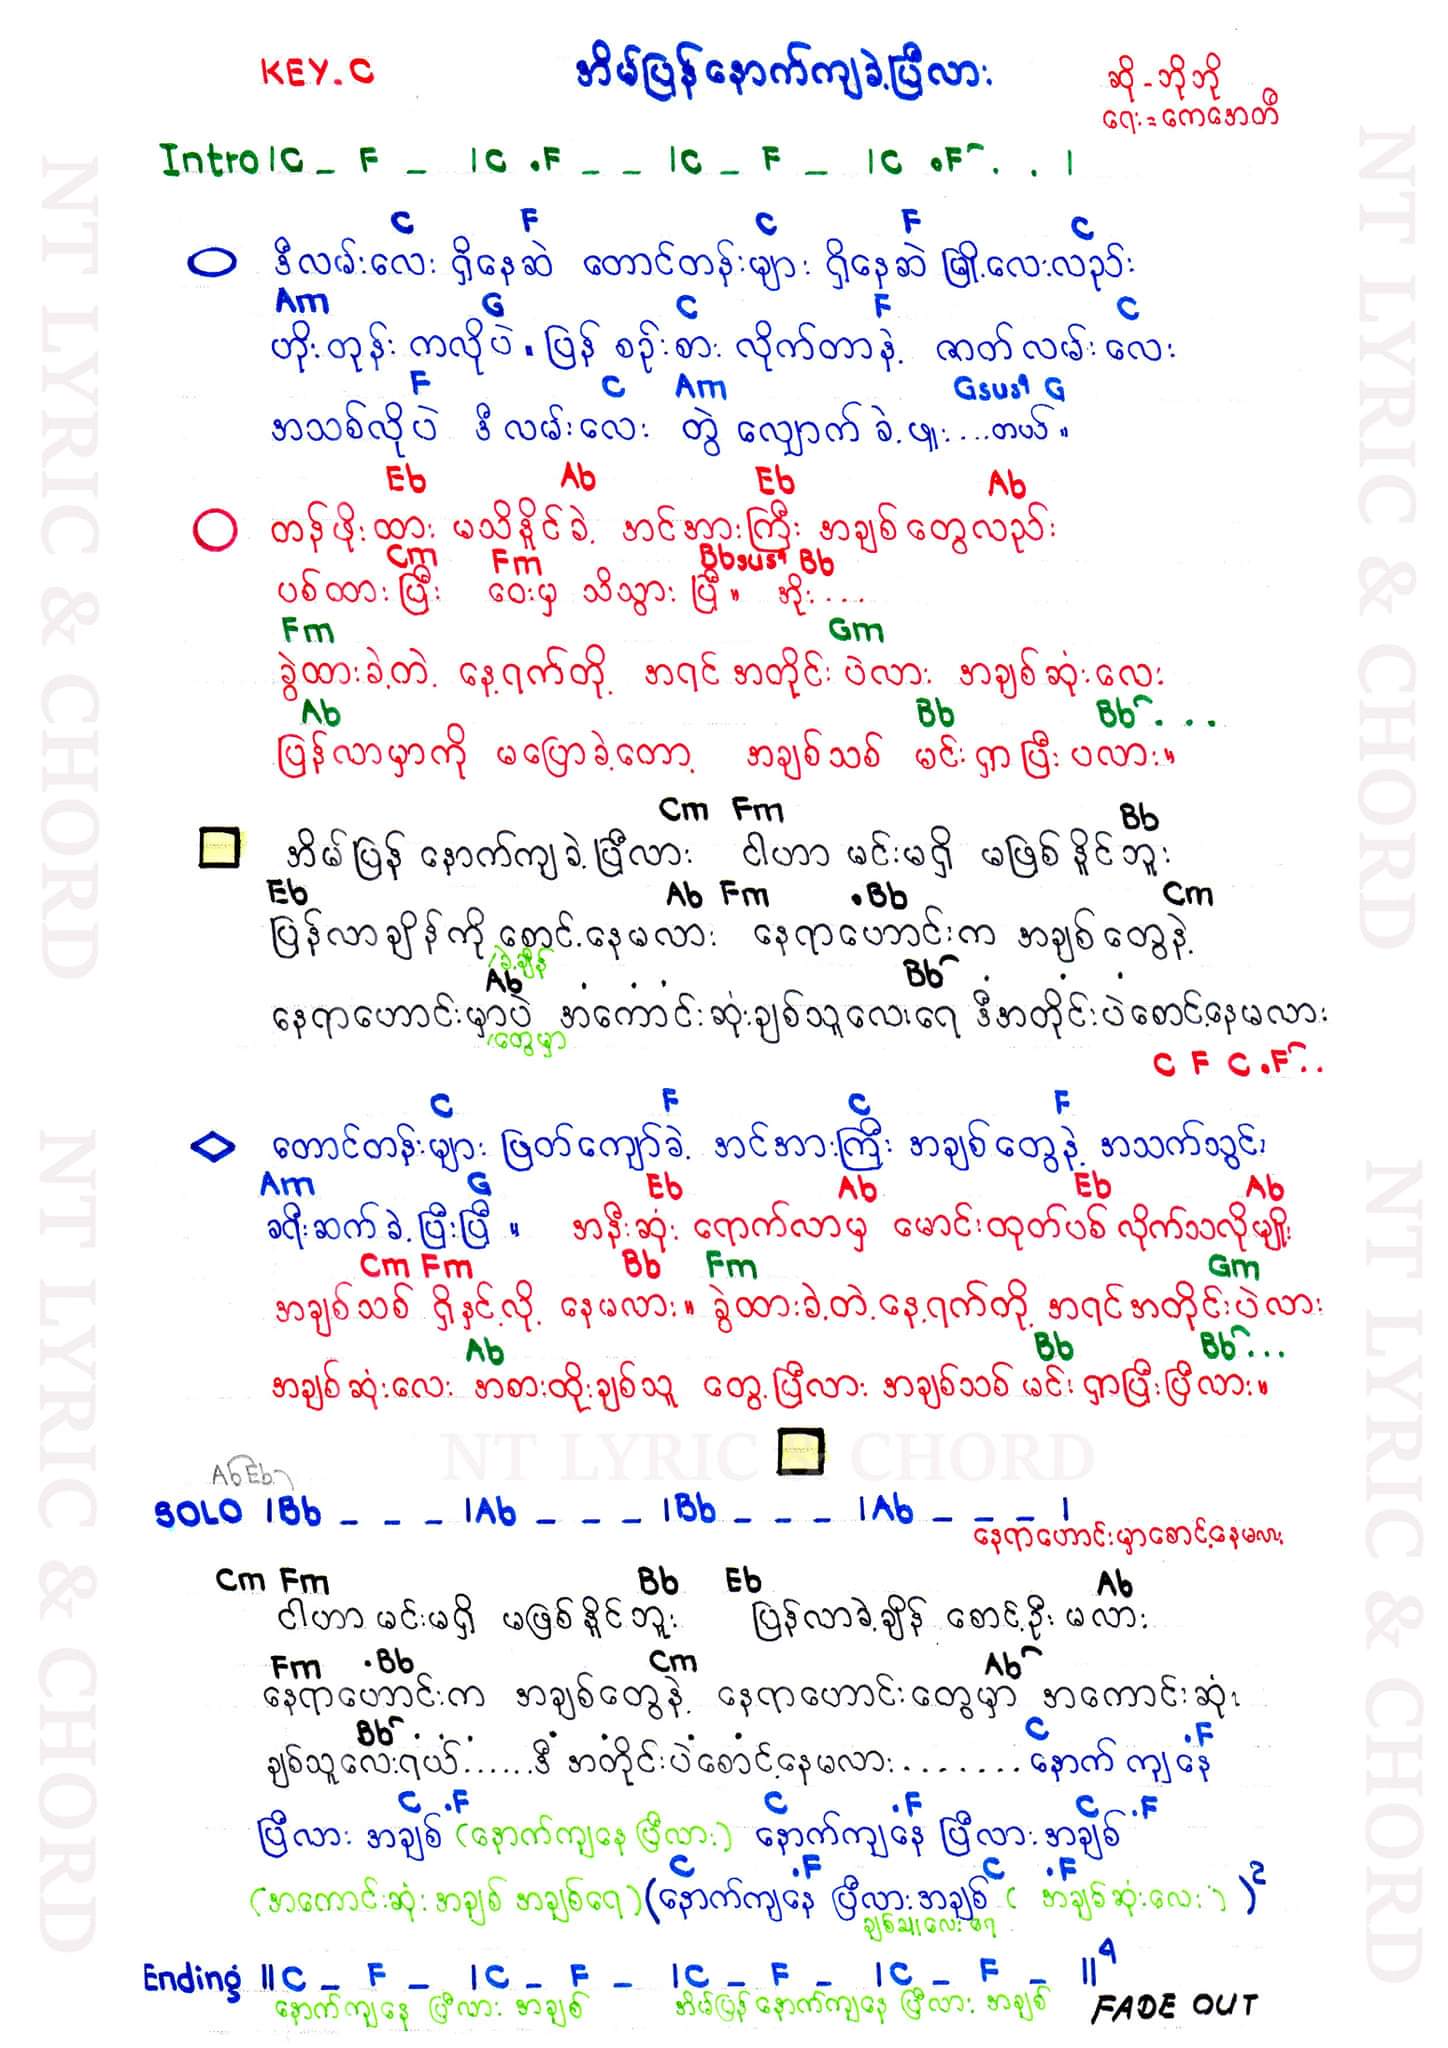 KEY-C အိမ်ပြန်နောက်ကျခဲ့ပြီလား ဆို-ဘိုဘို
ရေး=ကေအေတီ
Intro|C _ F _ |C .F _ _ |C _ F _ |C .F . . |
C F C F C
ဒီလမ်းလေး ရှိနေဆဲ တောင်တန်းများ ရှိနေဆဲ မြို့လေးလည်း
Am G C F C
ဟိုးတုန်း ကလိုပဲ။ ပြန် စဉ်းစား လိုက်တာနဲ့ ဇာတ်လမ်းလေး
F C Am Gsus4 G
အသစ်လိုပဲ ဒီလမ်းလေး တွဲ လျှောက်ခဲ့ဖူး...တယ်။
Eb Ab Eb Ab
တန်ဖိုးထား မသိနိူင်ခဲ့ အင်အားကြီး အချစ်တွေလည်း
Cm Fm Bbsus4 Bb
ပစ်ထားပြီး ဝေးမှ သိသွားပြီ။ အိုး....
Fm Gm
ခွဲထားခဲ့တဲ့ နေ့ရက်တို့ အရင်အတိုင်းပဲလား အချစ်ဆုံးလေး
Ab Bb Bb . . .
ပြန်လာမှာကို မပြောခဲ့တော့ အချစ်သစ် မင်းရှာပြီးပလား။
Cm Fm Bb
အိမ်ပြန် နောက်ကျခဲ့ပြီလား ငါဟာ မင်းမရှိ မဖြစ်နိူင်ဘူး
Eb Ab Fm .Bb Cm
ပြန်လာချိန်ကို စောင့်နေမလား နေရာဟောင်းက အချစ်တွေနဲ့
ခဲ့ချိန်
Ab Bb
နေရာဟောင်းမှာပဲ အကောင်းဆုံးချစ်သူလေးရေ ဒီအတိုင်းပဲစောင့်နေမလား
တွေမှာ
C F C .F . .
C F C F
တောင်တန်းများ ဖြတ်ကျော်ခဲ့ အင်အားကြီး အချစ်တွေနဲ့ အသက်သွင်း
Am G Eb Ab Eb Ab
ခရီးဆက်ခဲ့ပြီးပြီ။ အနီးဆုံး ရောက်လာမှ မောင်းထုတ်ပစ်လိုက်သလိုမျိုး
Cm Fm Bb Fm Gm
အချစ်သစ် ရှိနှင့်လို့ နေမလား။ ခွဲထားခဲ့တဲ့နေ့ရက်တို့ အရင်အတိုင်းပဲလား
Ab Bb Bb . . .
အချစ်ဆုံးလေး အစားထိုးချစ်သူ တွေ့ပြီလား အချစ်သစ်မင်း ရှာပြီးပြီလား။
NT LYRIC & CHORD
Ab Eb
SOLO |Bb _ _ _ |Ab _ _ _ |Bb _ _ _ |Ab _ _ _ |
နေရာဟောင်းမှာစောင့်နေမလား
Cm Fm Bb Eb Ab
ငါဟာမင်းမရှိ မဖြစ်နိူင်ဘူး ပြန်လာခဲ့ချိန် စောင့်ဦးမလား
Fm .Bb Cm Ab
နေရာဟောင်းက အချစ်တွေနဲ့ နေရာဟောင်းတွေမှာ အကောင်းဆုံး
Bb C .F
ချစ်သူလေးရယ်......ဒီအတိုင်းပဲစောင့်နေမလား........နောက်ကျနေ
C .F C .F C .F
ပြီလား အချစ် (နောက်ကျနေပြီလား) နောက်ကျနေ ပြီလားအချစ်
C .F C .F
(အကောင်းဆုံးအချစ် အချစ်ရေ)(နောက်ကျနေ ပြီလားအချစ် (အချစ်ဆုံးလေး))2
ချစ်သူလေးရေ
Ending ||C _ F _ |C _ F _ |C _ F _ |C _ F _ ||4
နောက်ကျနေ ပြီလား အချစ် အိမ်ပြန်နောက်ကျနေ ပြီလား အချစ်
FADE OUT
NT LYRIC & CHORD
NT LYRIC & CHORD
NT LYRIC & CHORD
NT LYRIC & CHORD